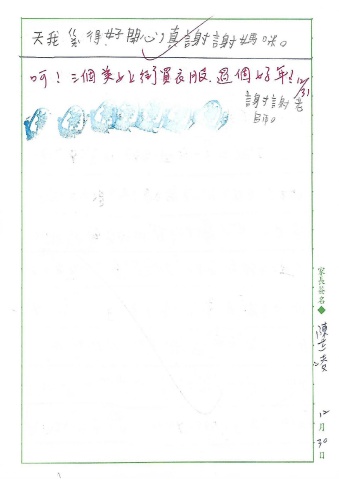 天我覺得好開心,真謝謝媽咪。
呵!三個美女上街買衣服,過個好年!
12/31
謝謝老師。
家長簽名◆
陳
12月30日